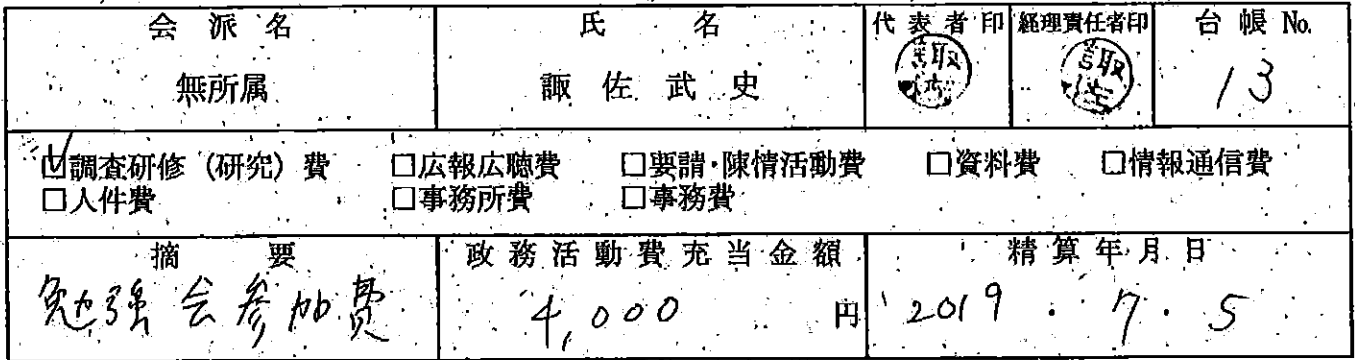 会派名 氏名 代表者印 経理責任者印 台帳No.
無所属 諏佐武史 諏佐 諏佐 13
☑調査研修（研究）費 □広報広聴費 □要請・陳情活動費 □資料費 □情報通信費
□人件費 □事務所費 □事務費
摘要 政務活動費充当金額 精算年月日
勉強会参加費 4,000円 2019.7.5